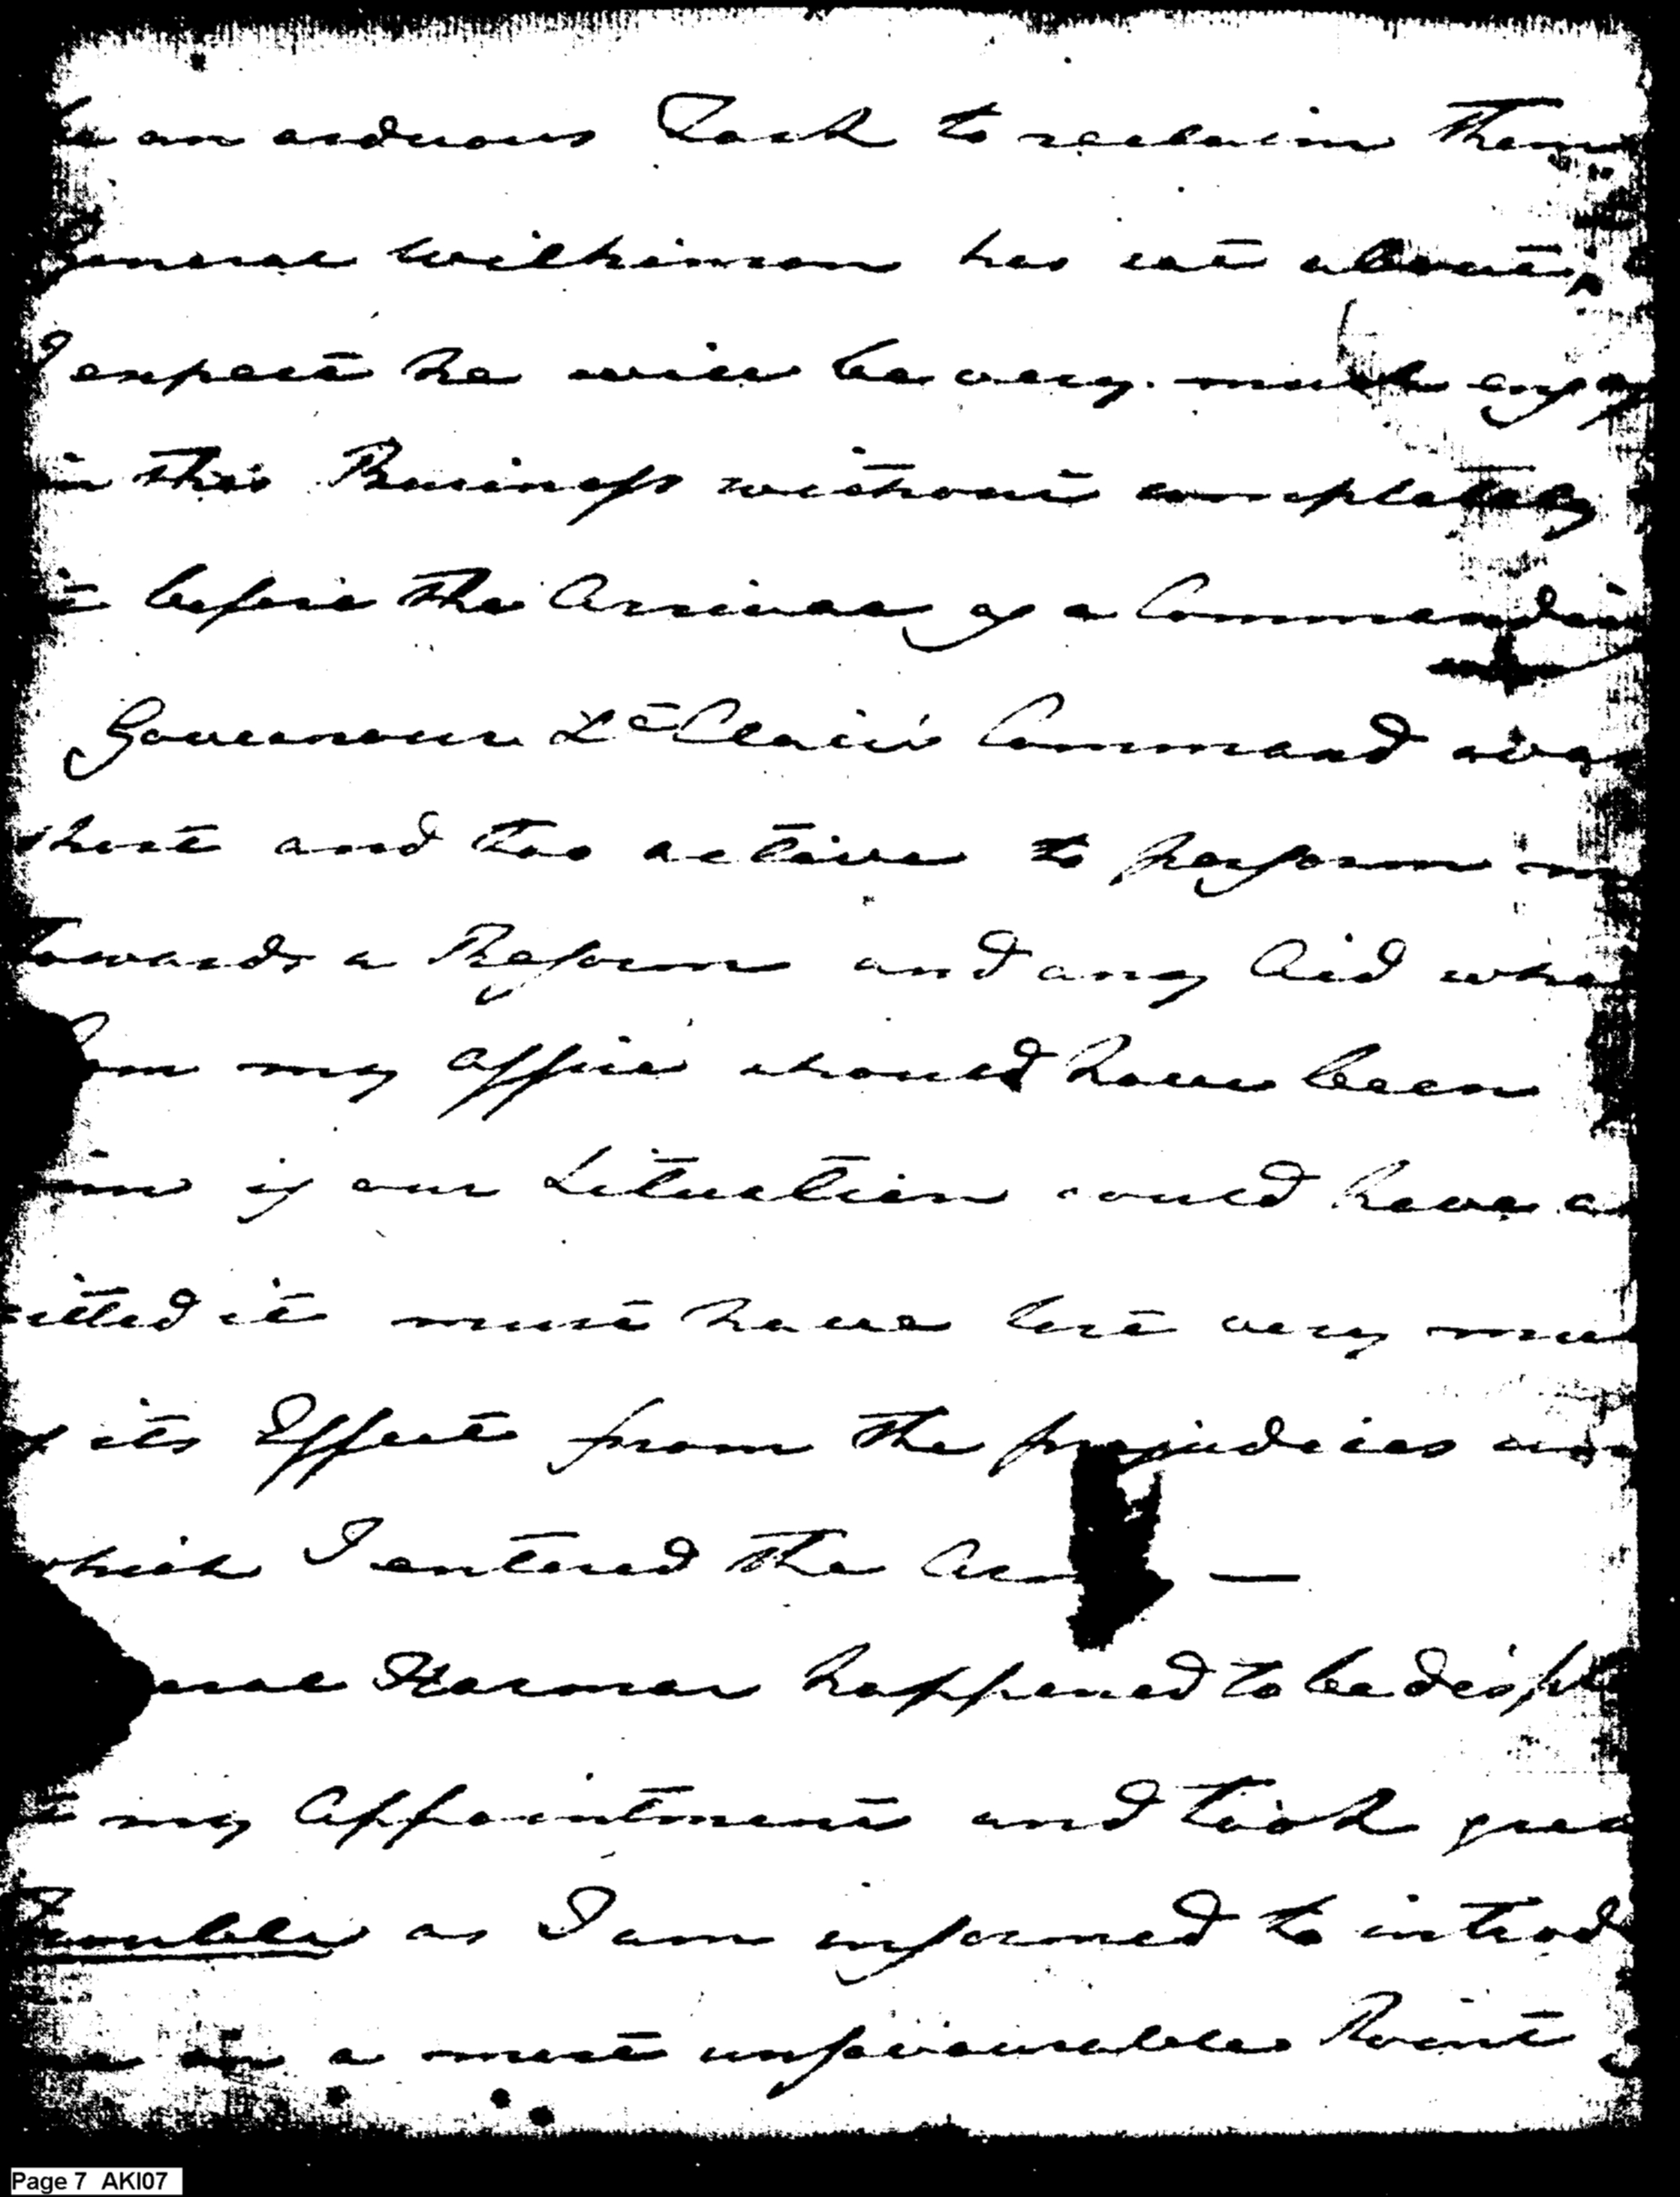 be an arduous Task to reclaim them
General Wilkinson has set about
I expect he will be very much
in this Business without completely
it before the Arrival of a
Governour St Clair's Command was
short and too active to perform
towards a Reform and any Aid
from my Office should have been
if our Situation could have
it must have lost very
of its Effect from the prejudices
which I entered the Army —
Harmar happened to be
to my Appointment and took
Trouble as I am informed to
me in a most unfavourable Point
Page 7 AKI07